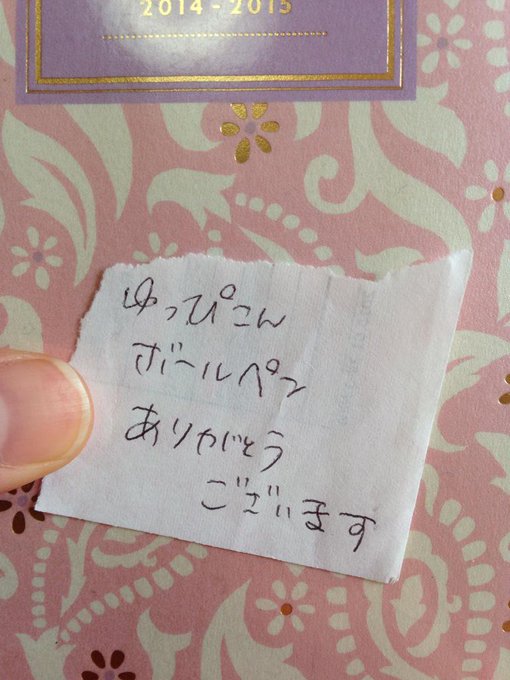 2014-2015
ゆっぴこん
ボールペン
ありがとう
ございます